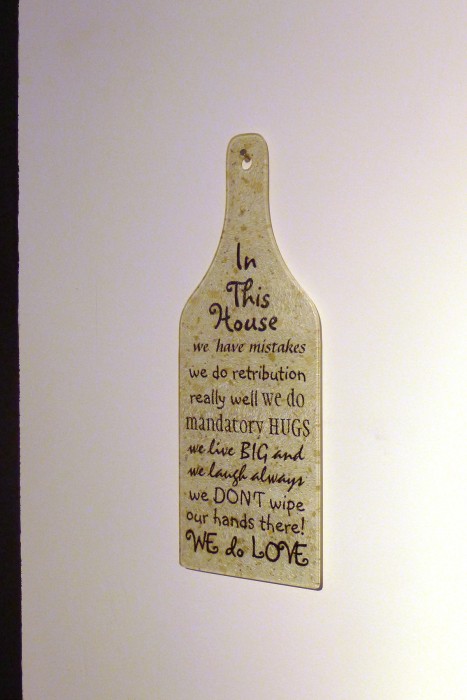 In
This
House
we have mistakes
we do retribution
really well we do
mandatory HUGS
we live BIG and
we laugh always
we DON'T wipe
our hands there!
WE do LOVE